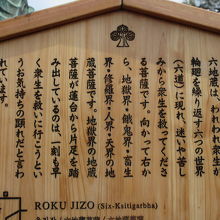 六地蔵は、それぞれ衆生が
輪廻を繰り返す六つの世界
（六道）に現れ、迷いや苦し
みから衆生を救ってくださ
る菩薩です。向かって右か
ら、地獄界・餓鬼界・畜生
界・修羅界・人界・天界の地
蔵菩薩です。地獄界の地蔵
菩薩が蓮台から片足を踏
み出しているのは、一刻も早
く衆生を救いに行こうとい
うお気持ちの顕れだと言わ
れています。
ROKU JIZO (Six-Ksitigarbha)